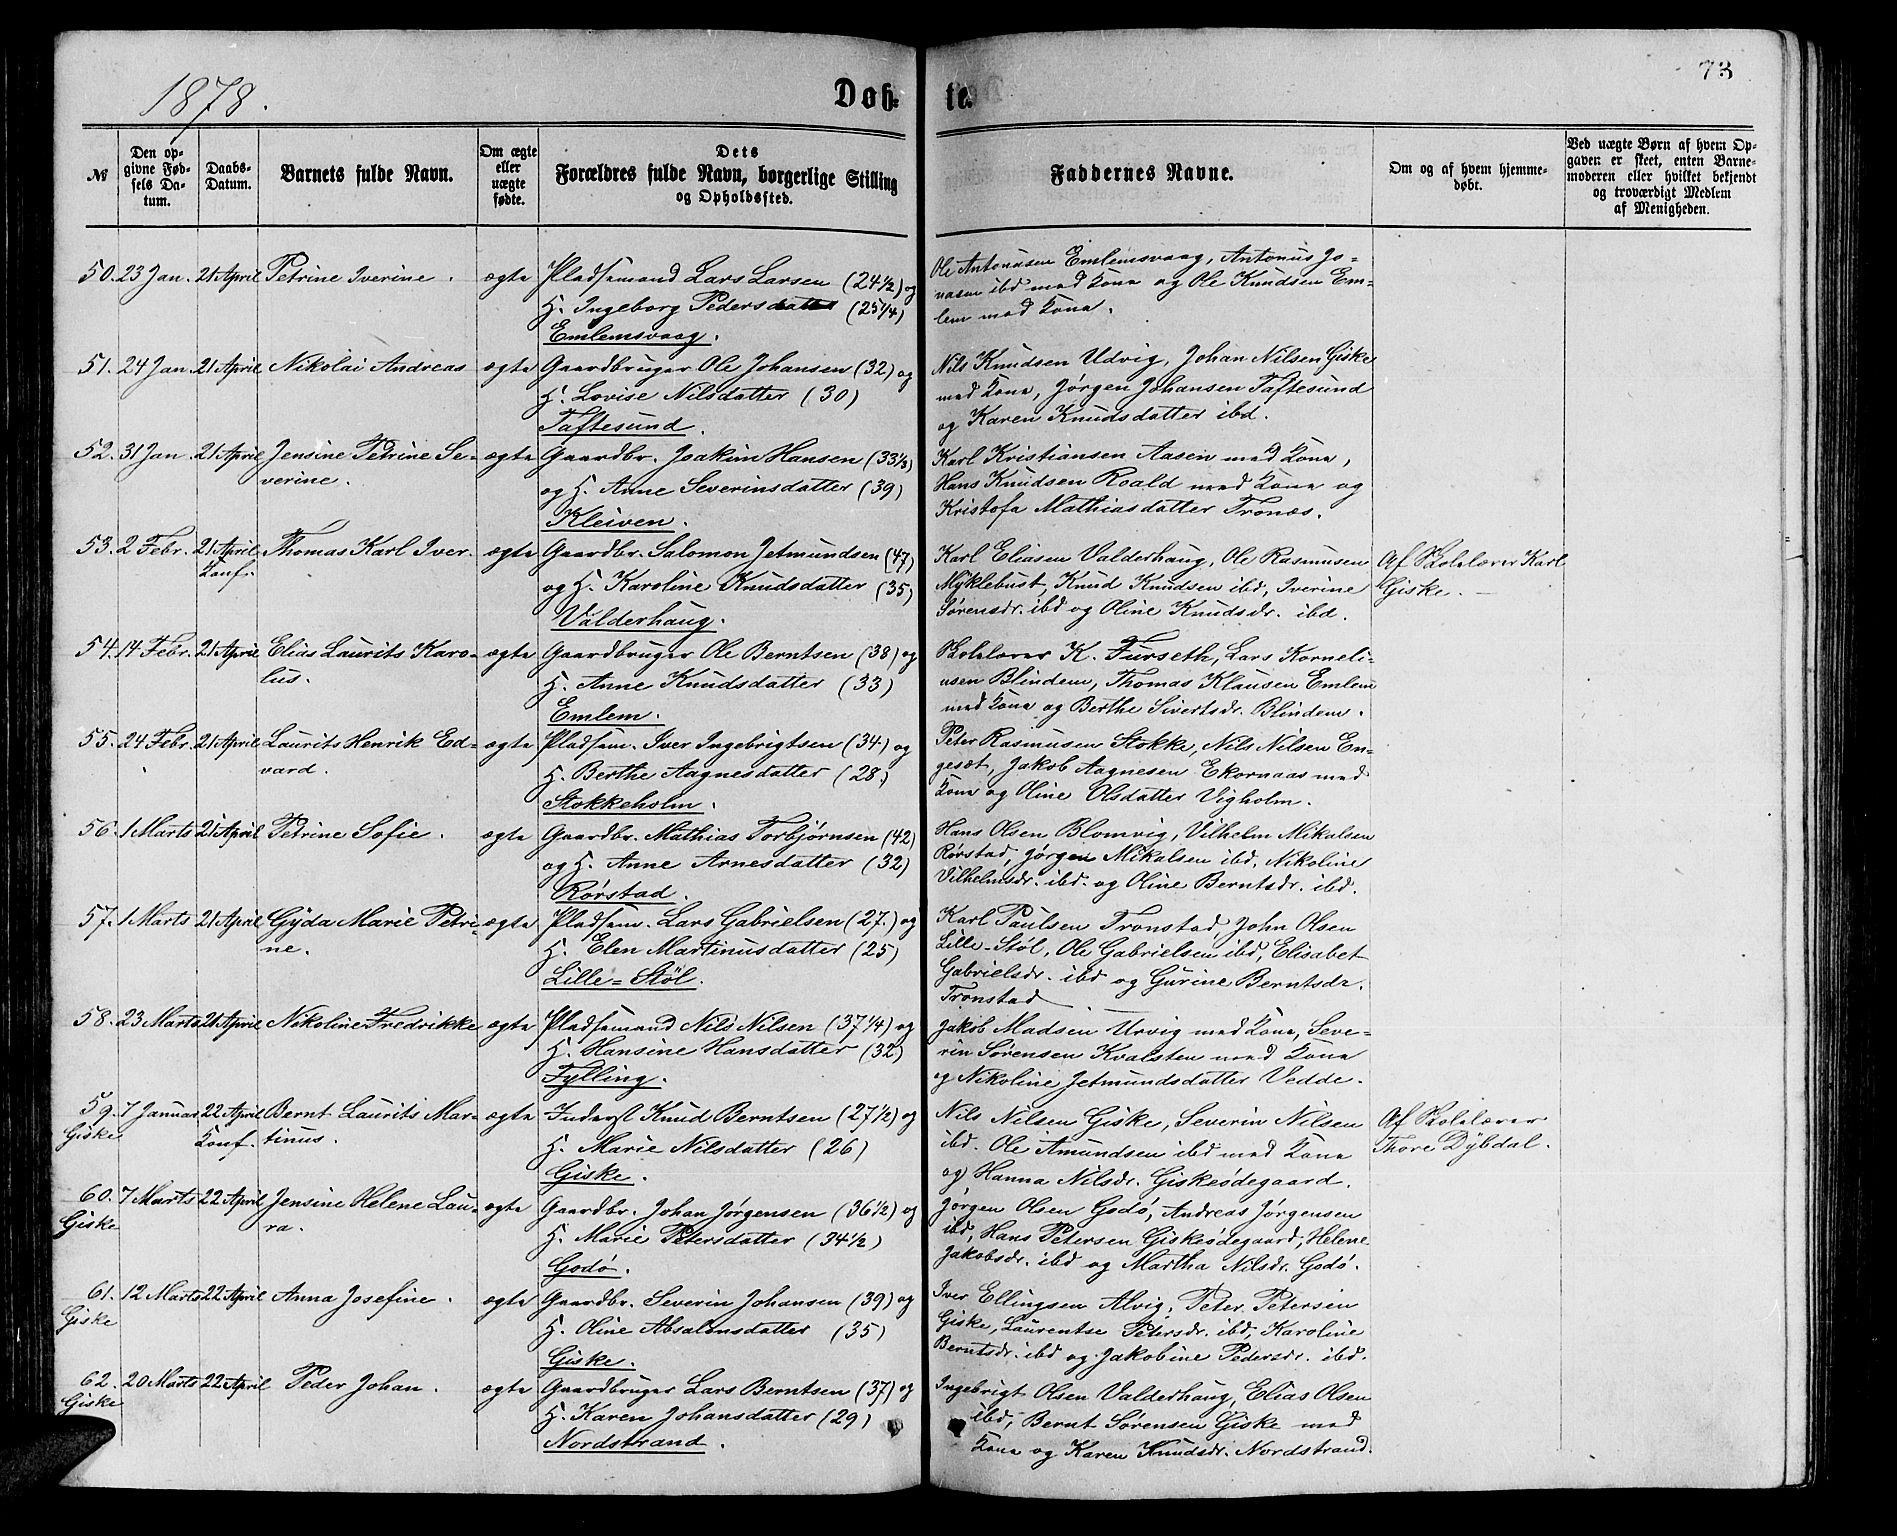 1878.
Døb-
te.
73
№
Den op-
givne Fød-
sels Da-
tum.
Daabs-
Datum.
Barnets fulde Navn.
Om ægte
eller
uægte
fødte.
Dets
Forældres fulde Navn, borgerlige Stilling
og Opholdssted.
Faddernes Navne.
Om og af hvem hjemme-
døbt.
Ved uægte Børn af hvem Op-
gaven er skeet, enten Barne-
moderen eller hvilket bekjendt
og troværdigt Medlem
af Menigheden.
50. 23 Jan. 21 April Petrine Iverine. ægte Pladsemand Lars Larsen (24 1/2) og
H. Ingeborg Pedersdatter (25 1/4)
Emlemsvaag.
Ole Antonusen Emlemsvaag, Antonus Jo-
nasen ibd med Kone og Ole Knudsen Em-
lem med Kone.
51. 24 Jan 21 April Nikolai Andreas ægte Gaardbruger Ole Johansen (32) og
H. Lovise Nilsdatter (30)
Taftesund.
Nils Knudsen Udvig, Johan Nilsen Giske
med Kone, Jørgen Johansen Taftesund
og Karen Knudsdatter ibd.
52. 31 Jan 21 April Jensine Petrine Se- ægte Gaardbr. Joakim Hansen (33 1/3)
verine. og H. Anne Severinsdatter (39)
Kleiven.
Karl Kristiansen Aasen med Kone,
Hans Knudsen Roald med Kone og
Kristofa Mathiasdatter Tronæs.
53. 2 Febr. 21 April Thomas Karl Iver. ægte Gaardbr. Salomon Jetmundsen (47)
Konf. og H. Karoline Knudsdatter (35)
Valderhaug.
Karl Eliasen Valderhaug, Ole Rasmusen
Myklebust, Knud Knudsen ibd, Iverine
Sørensdr. ibd og Oline Knudsdr. ibd.
Af Skolelærer Karl
Giske.
54. 14 Febr. 21 April Elias Laurits Karo- ægte Gaardbruger Ole Berntsen (38) og
lus. H. Anne Knudsdatter (33)
Emlem.
Skolelærer K. Furseth, Lars Korneli-
usen Blindem, Thomas Klausen Emlem
med Kone og Berthe Sivertsdr. Blindem.
55. 24 Febr. 21 April Laurits Henrik Ed- ægte Pladsem. Iver Ingebrigtsen (34) og
vard. H. Berthe Aagnesdatter (28)
Stokkeholm.
Peter Rasmusen Stokke, Nils Nilsen En-
gesæt, Jakob Aagnesen Ekornaas med
Kone og Oline Olsdatter Vigholm.
56. 1 Marts 21 April Petrine Sofie. ægte Gaardbr. Mathias Torbjørnsen (42)
og H. Anne Arnesdatter (32)
Rørstad.
Hans Olsen Blomvig, Vilhelm Mikalsen
Rørstad, Jørgen Mikalsen ibd, Nikoline
Vilhelmsdr. ibd. og Oline Berntsdr. ibd.
57. 1 Marts 21 April Gyda Marie Petri- ægte Pladsem. Lars Gabrielsen (27.) og
ne. H. Elen Martinusdatter (25)
Lille-Støl.
Karl Paulsen Tronstad, John Olsen
Lille-Støl, Ole Gabrielsen ibd, Elisabet
Gabrielsdr. ibd og Gurine Berntsdr.
Tronstad
58. 23 Marts 21 April Nikoline Fredrikke ægte Pladsemand Nils Nilsen (37 1/4) og
H. Hansine Hansdatter (32)
Fylling.
Jakob Madsen Urvig med Kone, Seve-
rin Sørensen Kvalsten med Kone
og Nikoline Jetmundsdatter Vedde.
59. 7 Januar 22 April Bernt Laurits Mar- ægte Inderst Knud Berntsen (27 1/2) og
Giske Konf. tinus. H. Marie Nilsdatter (26)
Giske.
Nils Nilsen Giske, Severin Nilsen
ibd. Ole Amundsen ibd med Kone
og Hanna Nilsdr. Giskeødegaard.
Af Skolelærer
Thore Dybdal.
60. 7 Marts 22 April Jensine Helene Lau- ægte Gaardbr. Johan Jørgensen (36 1/2) og
Giske ra. H. Marie Petersdatter (34 1/2)
Godø.
Jørgen Olsen Godø, Andreas Jørgensen
ibd, Hans Petersen Giskeødegaard, Helene
Jakobsdr. ibd og Martha Nilsdr. Godø.
61. 12 Marts 22 April Anna Josefine. ægte Gaardbr. Severin Johansen (39) og
Giske H. Oline Absalonsdatter (35)
Giske.
Iver Ellingsen Alvig, Peter Petersen
Giske, Laurentse Petersdr. ibd, Karoline
Berntsdr. ibd og Jakobine Pedersdr. ibd.
62. 20 Marts 22 April Peder Johan. ægte Gaardbruger Lars Berntsen (37) og
Giske H. Karen Johansdatter (29)
Nordstrand.
Ingebrigt Olsen Valderhaug, Elias Olsen
ibd, Bernt Sørensen Giske med
Kone og Karen Knudsdr. Nordstrand.